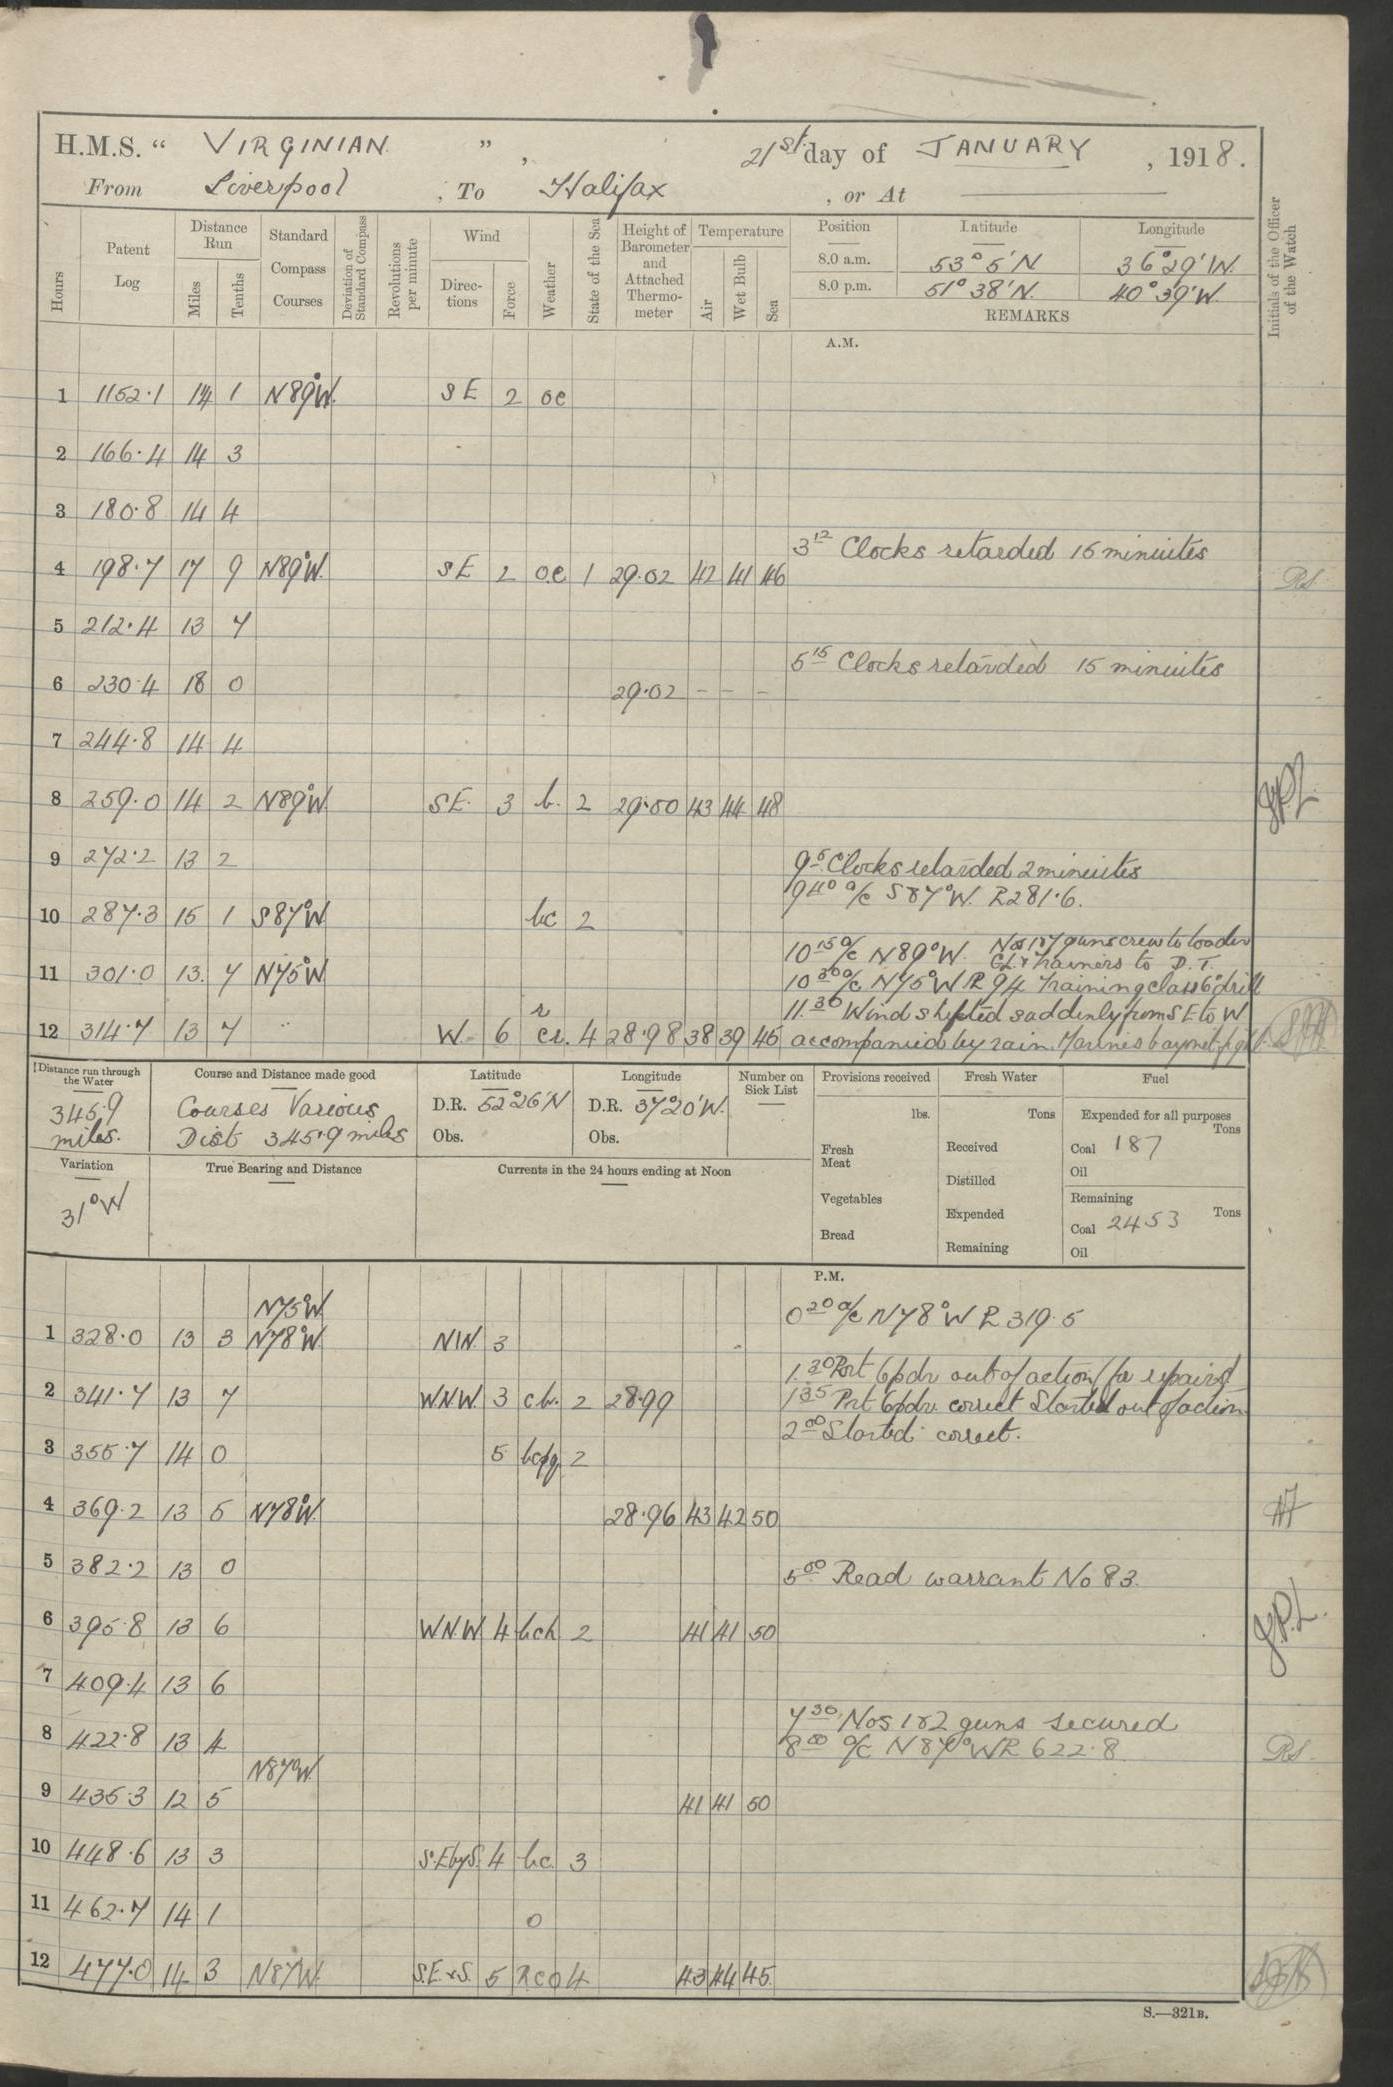 H.M.S. “ VIRGINIAN ” , 21st day of JANUARY , 1918.
From Liverpool , To Halifax , or At
Hours
Patent Log
Distance Run
Miles
Tenths
Standard Compass Courses
Deviation of Standard Compass
Revolutions per minute
Wind
Directions
Force
Weather
State of the Sea
Height of Barometer and Attached Thermometer
Temperature
Air
Wet Bulb
Sea
Position Latitude Longitude
8.0 a.m. 53° 5' N. 36° 29' W.
8.0 p.m. 51° 38' N. 40° 39' W.
REMARKS
Initials of the Officer of the Watch
A.M.
1 1152.1 14 1 N89°W. SE 2 oc
2 166.4 14 3
3 180.8 14 4
3 12 Clocks retarded 15 minuites
4 198.7 17 9 N89°W. SE 2 o.c 1 29.02 42 41 46 RS
5 212.4 13 7
5 15 Clocks retarded 15 minuites
6 230.4 18 0 29.02 - - -
7 244.8 14 4
8 259.0 14 2 N89°W. SE. 3 b. 2 29.00 43 44 48 JPL
9 272.2 13 2 9 5 Clocks retarded 2 minuites
9 40 a/c S87°W. R281.6.
10 287.3 15 1 S87°W bc 2
10 15 a/c N89°W. Nos 1&7 guns crew to loader
G.L. & Trainers to D.T.
11 301.0 13. 7 N75°W 10 30 a/c N75°W R 94 Training class 6" drill
11.30 Wind shifted suddenly from SE to W
12 314.7 13 7 W. 6 r cr. 4 28.98 38 39 45 accompanied by rain. Marines bayonet
Distance run through the Water
345.9 miles.
Course and Distance made good
Courses Various
Dist 345.9 miles
Latitude
D.R. 52°26'N
Obs.
Longitude
D.R. 37°20'W.
Obs.
Number on Sick List
Provisions received
lbs.
Fresh Meat
Vegetables
Bread
Fresh Water
Tons
Received
Distilled
Expended
Remaining
Fuel
Expended for all purposes
Tons
Coal 187
Oil
Remaining
Tons
Coal 2453
Oil
Variation
31°W
True Bearing and Distance
Currents in the 24 hours ending at Noon
P.M.
N75°W. 0 20 a/c N78°W R 319.5
1 328.0 13 3 N78°W. NIN. 3
1.30 Port 6pdr out of action (for repairs)
2 341.7 13 7 WNW. 3 cb. 2 28.99 1 35 Port 6pdr. correct Starbd out of action
2 00 Starbd. correct.
3 355.7 14 0 5 bcpq 2
4 369.2 13 5 N78°W. 28.96 43 42 50
5 382.2 13 0 5 00 Read warrant No 83.
6 395.8 13 6 WNW 4 bch 2 41 41 50 JPL.
7 409.4 13 6
7 30 Nos 1&2 guns secured
8 422.8 13 4 8 00 a/c N87°W R 622.8. RS
N87°W.
9 435.3 12 5 41 41 50
10 448.6 13 3 S.E by S. 4 bc. 3
11 462.7 14 1 o
12 477.0 14 3 N87W. S.E x S. 5 Rco 4 43 44 45
S.—321B.